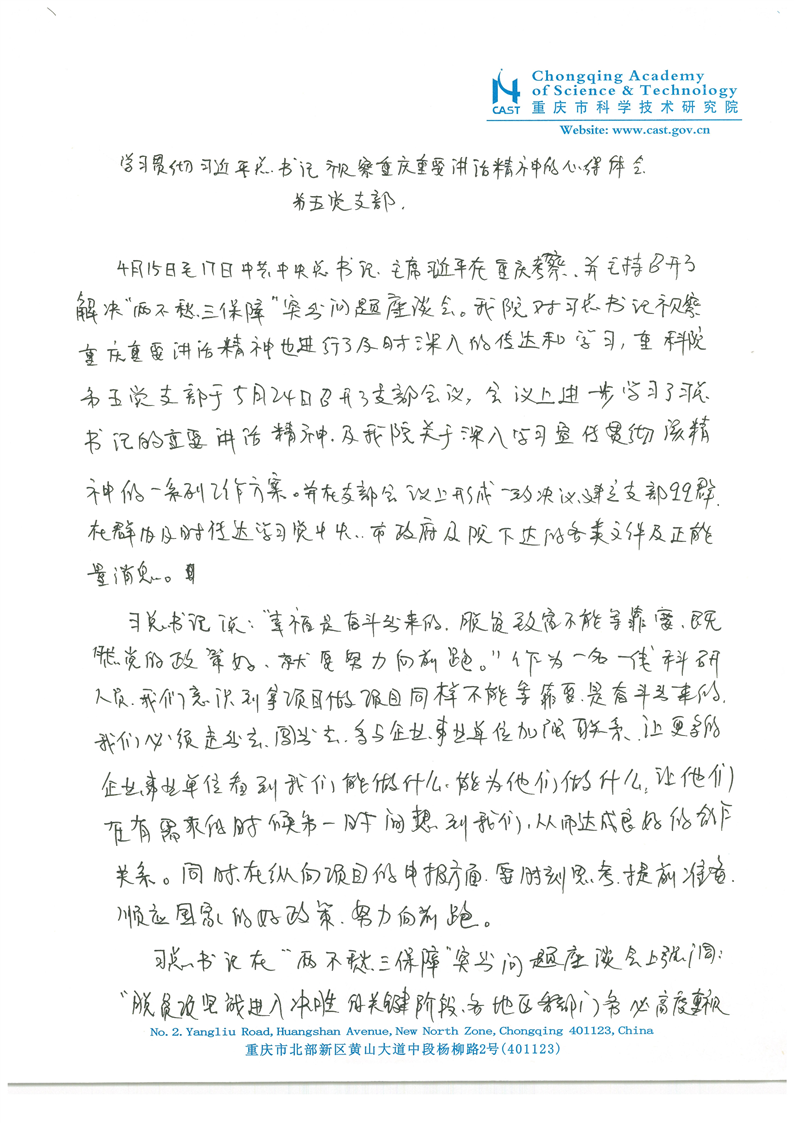 Chongqing Academy
of Science & Technology
CAST
重庆市科学技术研究院
Website: www.cast.gov.cn
学习贯彻习近平总书记视察重庆重要讲话精神的心得体会
第五党支部.
4月15日至17日中共中央总书记、主席习近平在重庆考察、并主持召开了
解决“两不愁、三保障”突出问题座谈会。我院对习总书记视察
重庆重要讲话精神也进行了及时深入的传达和学习，重科院
第五党支部于5月24日召开了支部会议，会议上进一步学习了习总
书记的重要讲话精神.及我院关于深入学习宣传贯彻该精
神的一系列工作方案。并在支部会议上形成一致决议、建立支部QQ群.
在群内及时传达学习党中央、市政府及院下达的各类文件及正能
量消息。
习总书记说：“幸福是奋斗出来的.脱贫致富不能等靠要、既
然党的政策好、就要努力向前跑。”作为一名一线科研
人员.我们意识到等项目做项目同样不能等靠要.是奋斗出来的.
我们必须走出去、闯出去、多与企业、事业单位加强联系、让更多的
企业、事业单位看到我们能做什么.能为他们做什么，让他们
在有需求的时候第一时间想到我们，从而达成良好的合作
关系。同时、在纵向项目的申报方面.要时刻思考、提前准备.
顺应国家的好政策.努力向前跑。
习总书记在“两不愁、三保障”突出问题座谈会上强调：
“脱贫攻坚战进入决胜的关键阶段、各地区和部门务必高度重视
No. 2. Yangliu Road, Huangshan Avenue, New North Zone, Chongqing 401123, China
重庆市北部新区黄山大道中段杨柳路2号(401123)